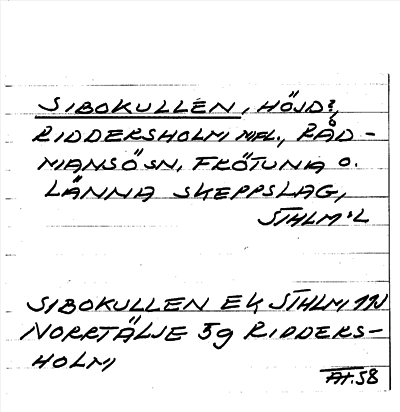 SIBOKULLEN, HÖJD?,
RIDDERSHOLM MFL., RÅD-
MANSÖ SN, FRÖTUNA O.
LÄNNA SKEPPSLAG,
STHLM:L
SIBOKULLEN EK STHLM 11N
NORRTÄLJE 5g RIDDERS-
HOLM
AH.58